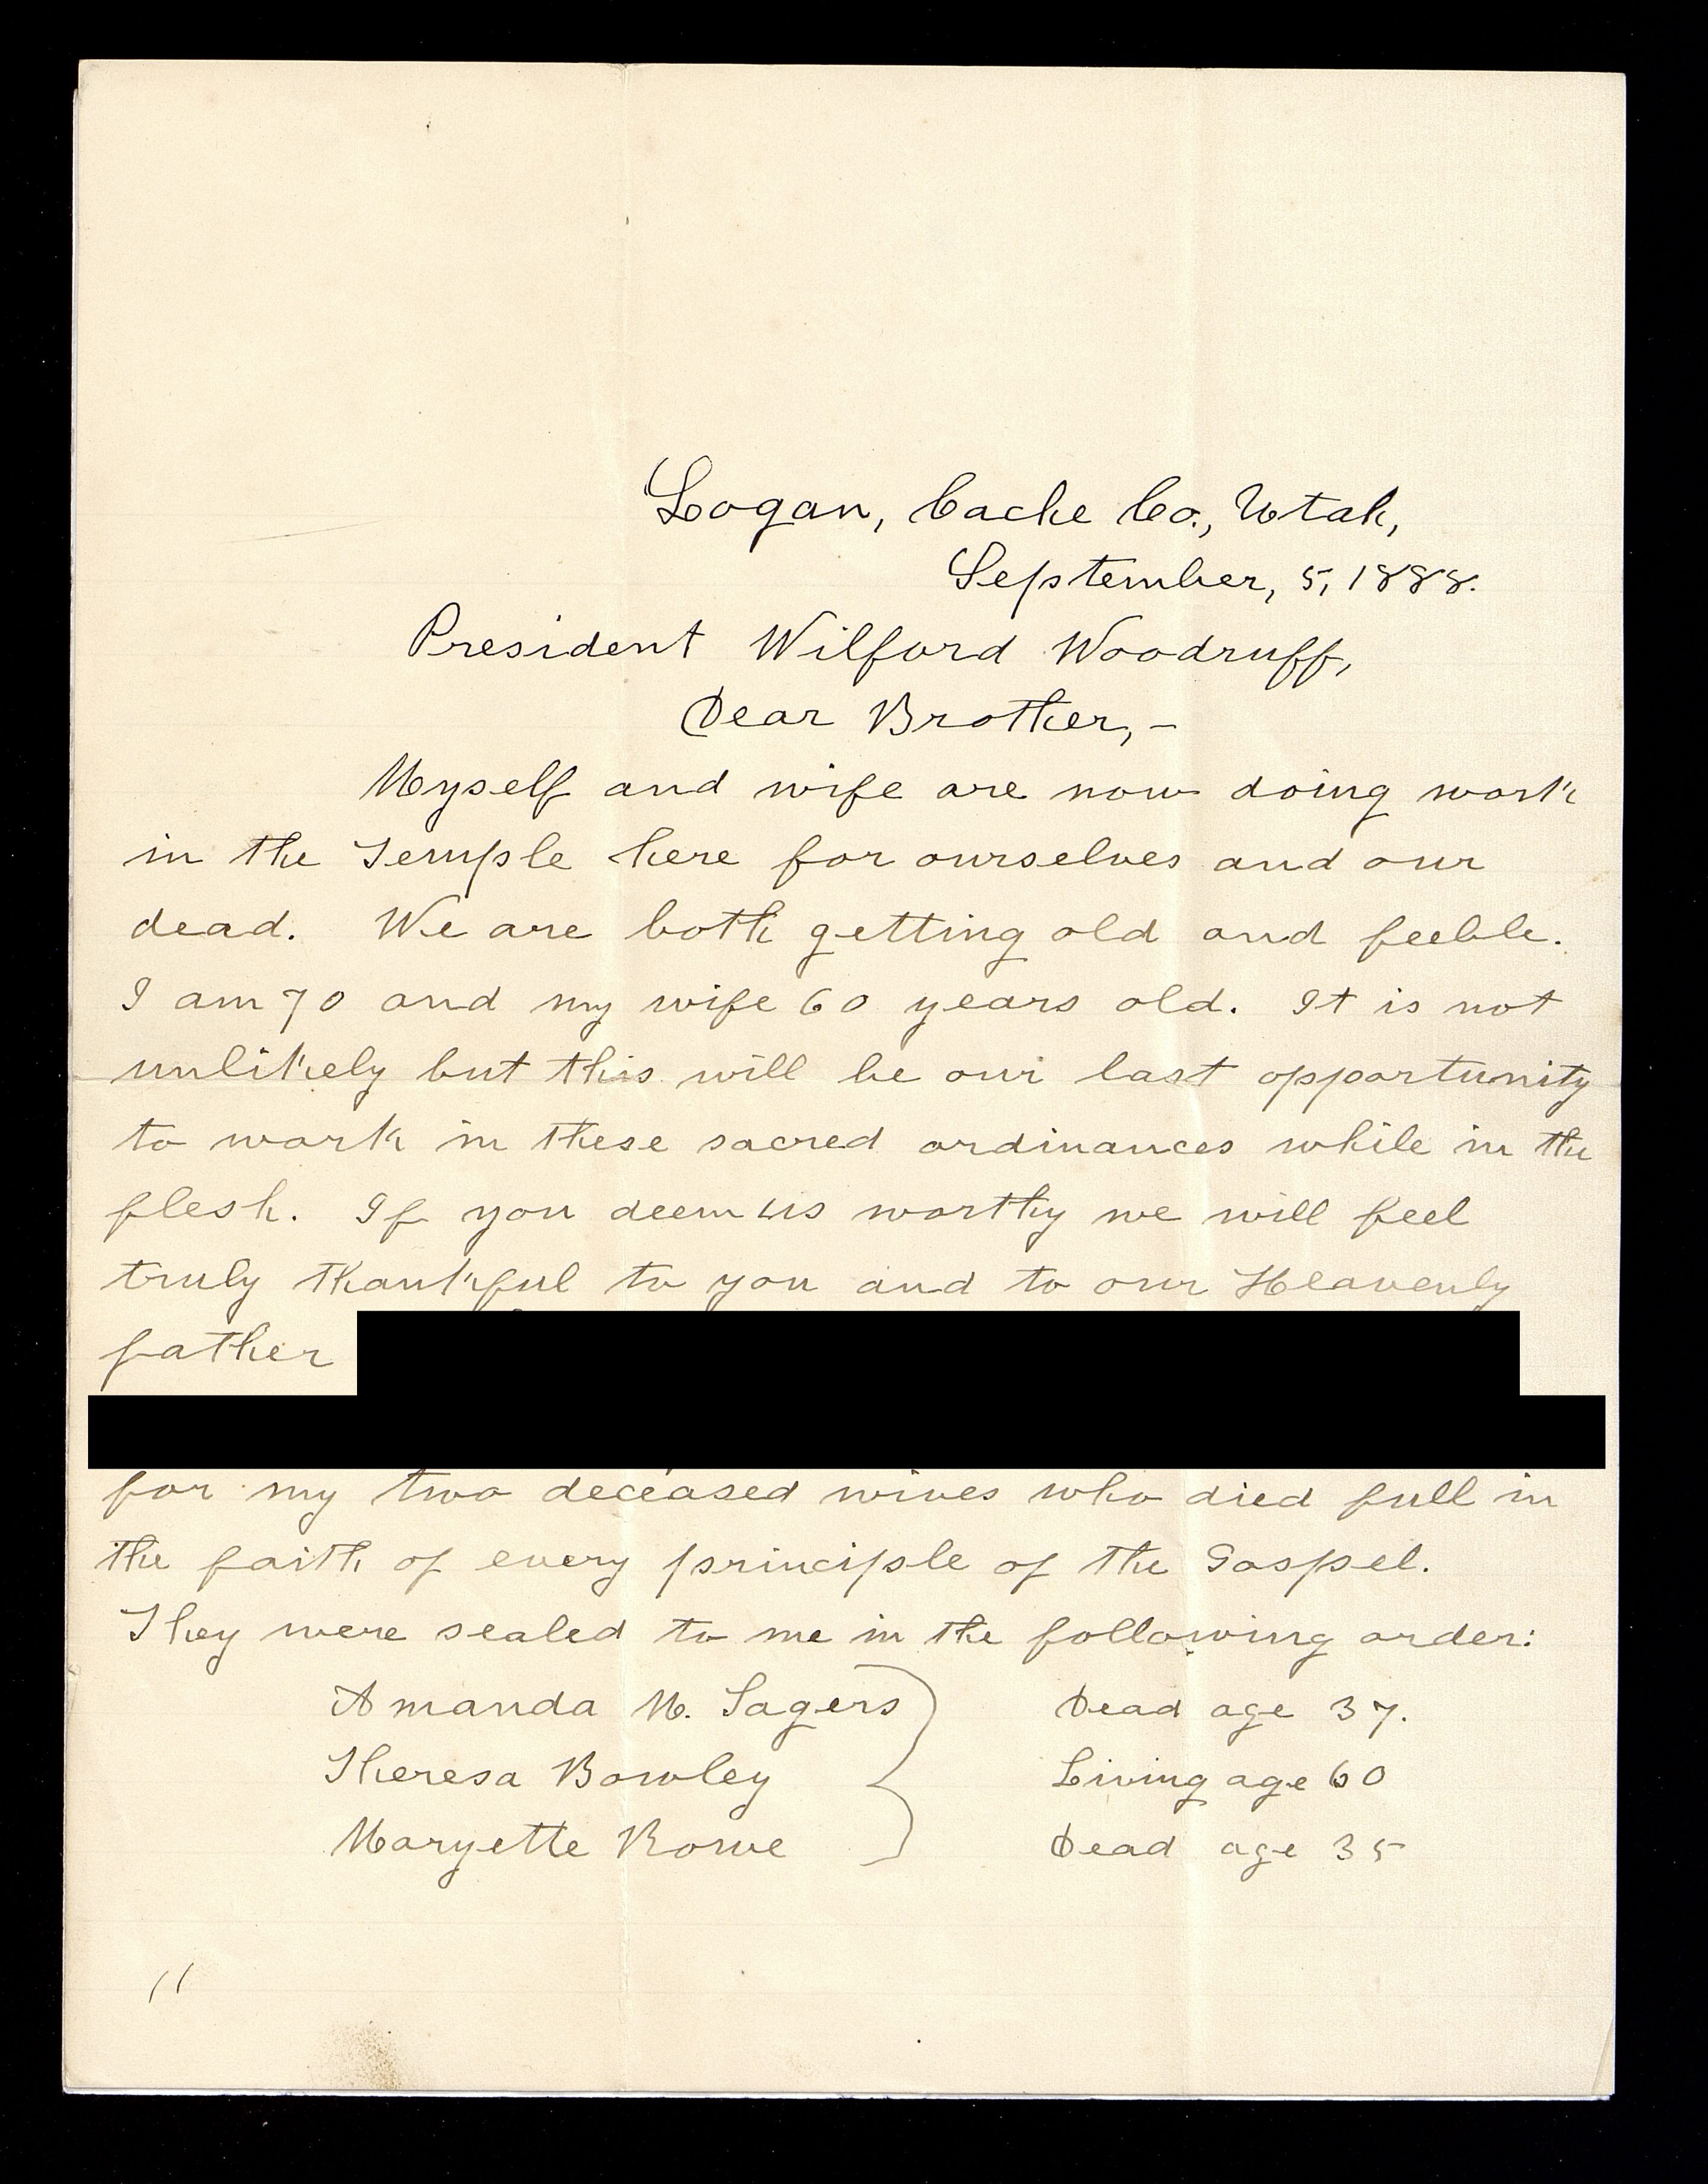 Logan, Cache Co., Utah,
September, 5, 1888.
President Wilford Woodruff,
Dear Brother,-
Myself and wife are now doing work
in the Temple here for ourselves and our
dead. We are both getting old and feeble.
I am 70 and my wife 60 years old. It is not
unlikely but this will be our last opportunity
to work in these sacred ordinances while in the
flesh. If you deem us worthy we will feel
truly thankful to you and to our Heavenly
father
for my two deceased wives who died full in
the faith of every principle of the Gospel.
They were sealed to me in the following order:
Amanda M. Sagers } Dead age 37.
Theresa Bowley } Living age 60
Maryette Rowe } Dead age 35